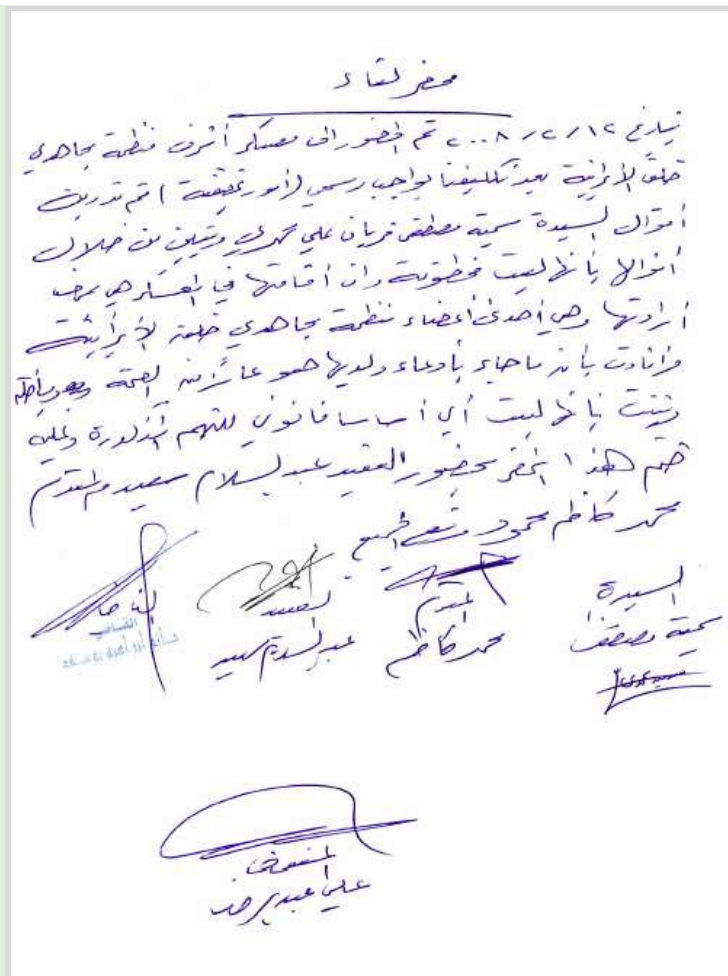 محضر لقاء
بتاريخ ١٢/ ٢/ ٢٠٠٨ تم الحضور الى معسكر أشرف منظمة مجاهدي
خلق الايرانية بعد تكليفنا بواجب رسمي (أمور تحقيقية) تم تدوين
أقوال السيدة سمية مصطفى قربان علي محمدي وتبين من خلال
أقوالها بأنها ليست مخطوفة وان أقامتها في المعسكر هي بمحض
أرادتها وهي أحدى أعضاء منظمة مجاهدي خلق الايرانية
وأفادت بأن ماجاء بأدعاء والديها هو عار من الصحة
وتبينت بأنها ليست أي أساسا قانوني للتهم المذكورة وعليه
ختم هذا المحضر بحضور العقيد عبد السلام سعيد والمقدم
محمد كاظم محمود وتوقيع الجميع
السيدة المقدم العقيد القاضي
سمية مصطفى محمد كاظم عبد السلام سعيد
القاضي
المفوض
علي عبد